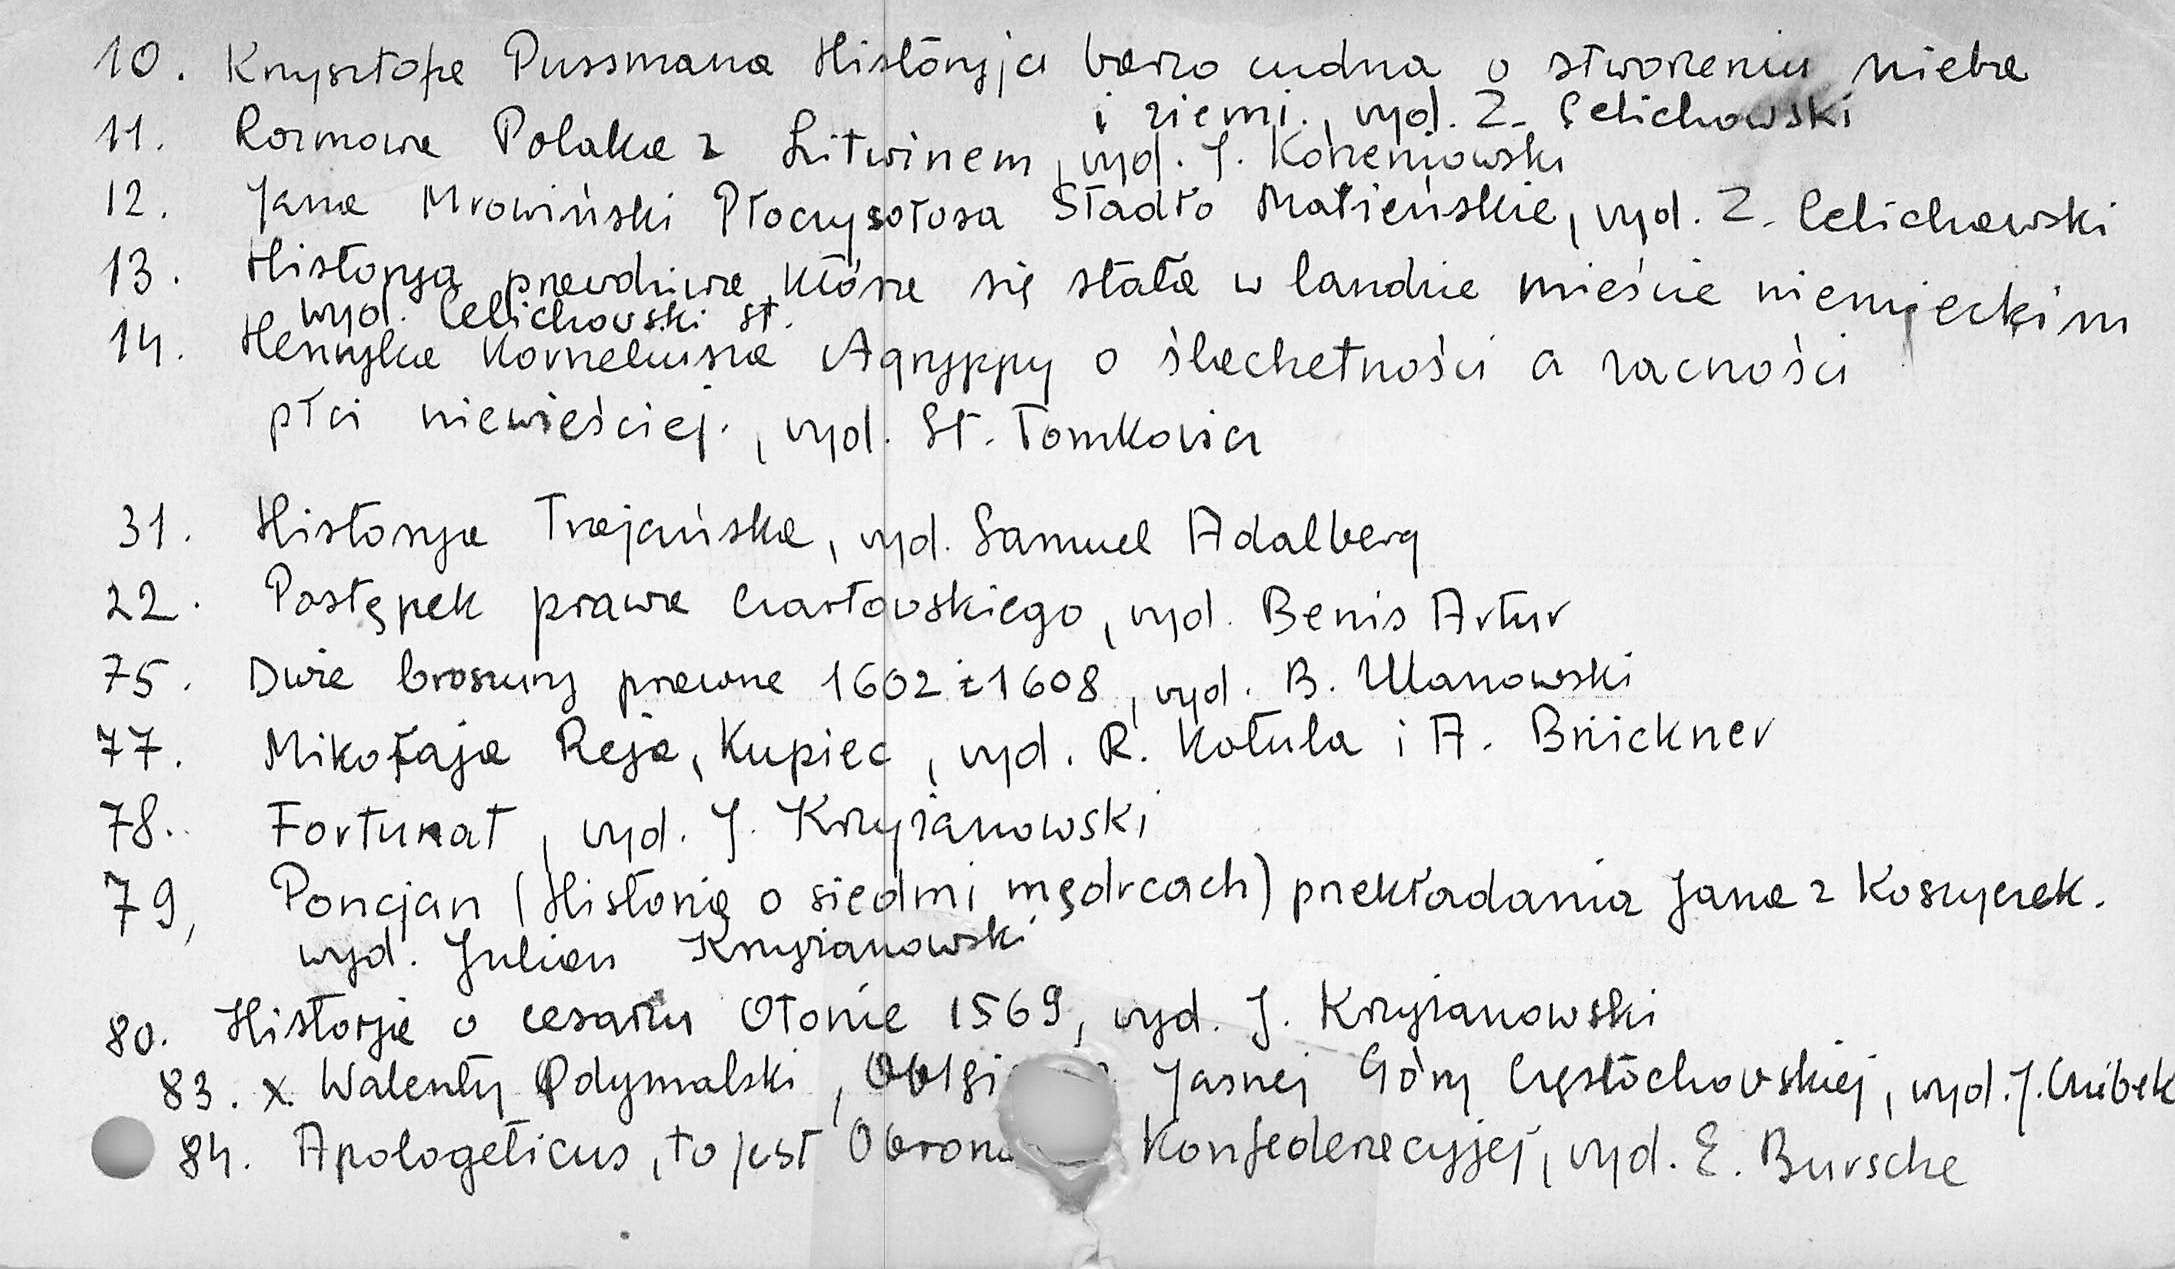 10. Krzysztofa Pussmana Historyja barzo cudna o stworzeniu nieba
i ziemi., wyd. Z. Celichowski
11. Rozmowa Polaka z Litwinem, wyd. J. Korzeniowski
12. Jana Mrowiński Płoczysołosa Stadło Małżeńskie, wyd. Z. Celichowski
13. Historya prawdziwa która się stała w Landzie mieście niemieckim
wyd. Celichowski St.
14. Henryka Korneliusza Agryppy o ślachetności a zacności
płci niewieściej., wyd. St. Tomkowicz
31. Historya Trojańska, wyd. Samuel Adalberg
22. Postępek prawa czartowskiego, wyd. Benis Artur
75. Dwie broszury prawne 1602 i 1608, wyd. B. Ulanowski
77. Mikołaja Reja, Kupiec, wyd. R. Kotula i A. Brückner
78. Fortunat, wyd. J. Krzyżanowski
79, Poncjan (Historia o siedmi mędrcach) przekładania Jana z Koszyczek.
wyd. Julian Krzyżanowski
80. Historja o cesarzu Otonie 1569, wyd. J. Krzyżanowski
83. X. Walenty Odymalski, Jasnej Góry Częstochowskiej, wyd. J. Czubek
84. Apologeticus, to jest Obrona Konfederacyjej, wyd. E. Bursche